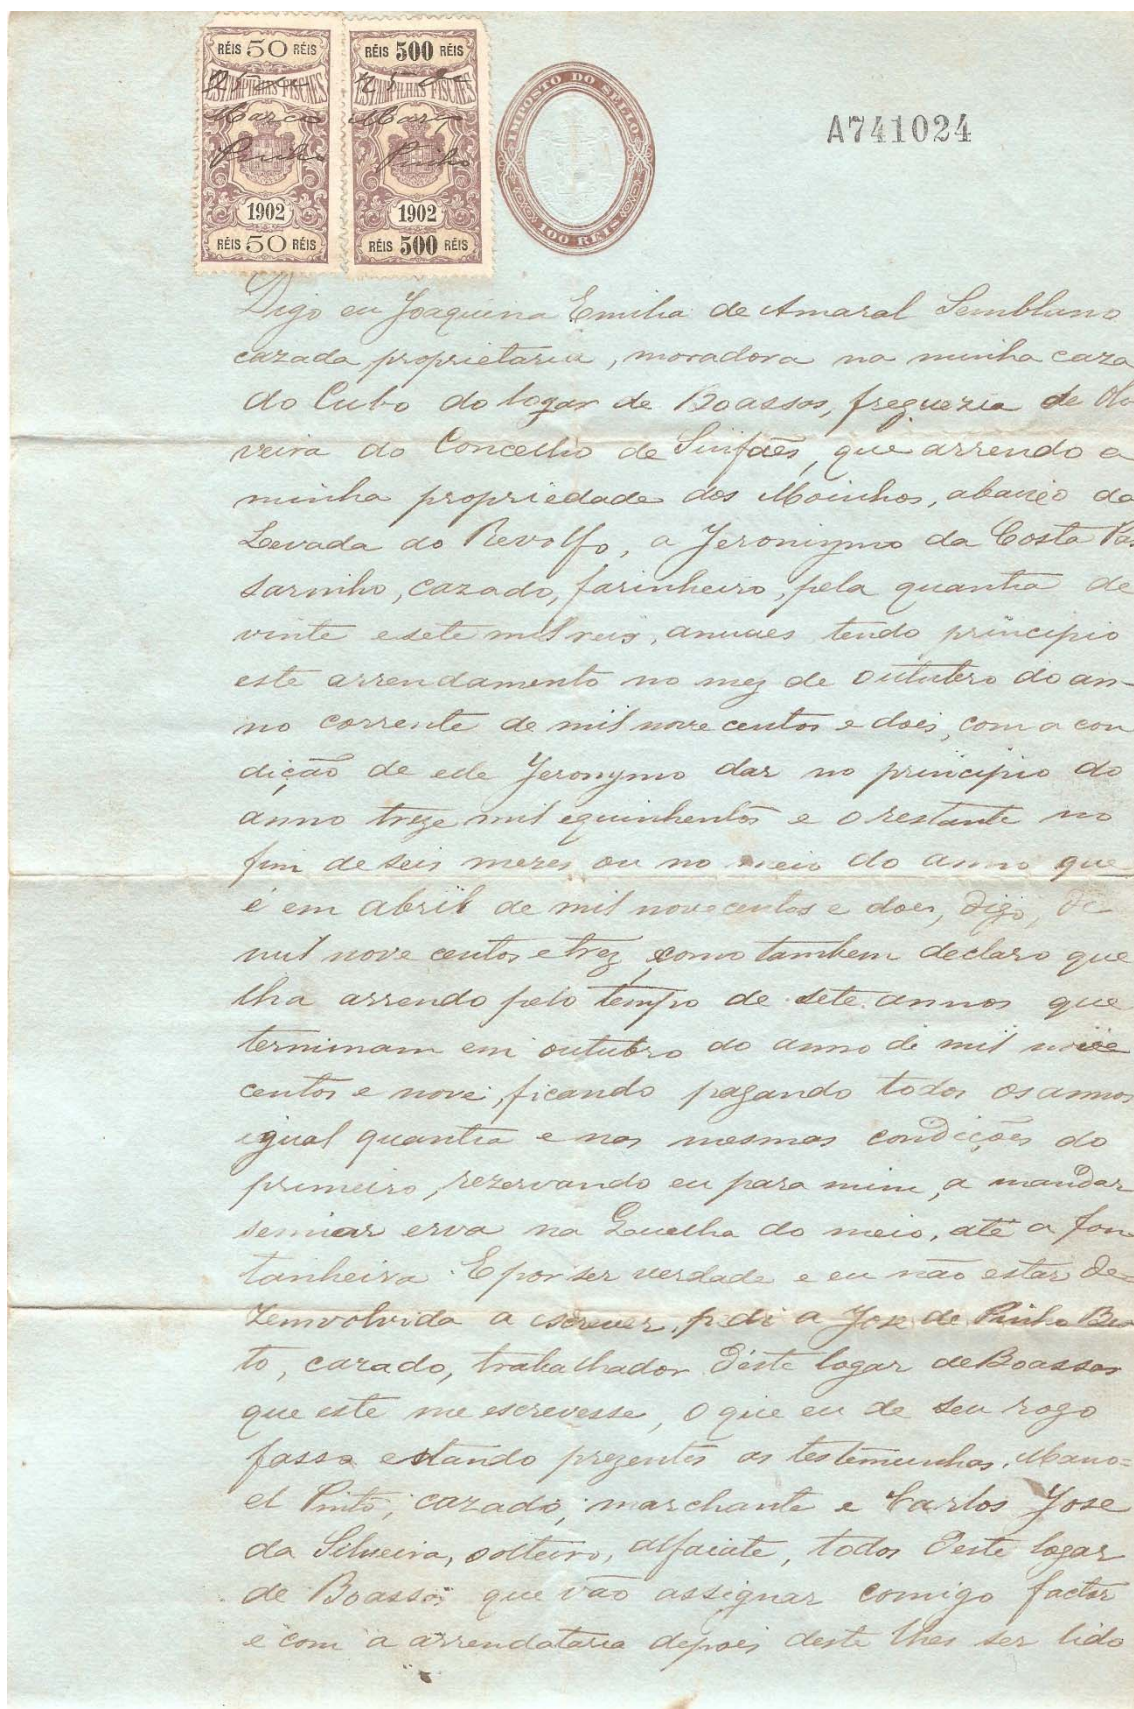 RÉIS 50 RÉIS
ESTAMPILHAS FISCAES
Março
Pinho
1902
RÉIS 50 RÉIS
RÉIS 500 RÉIS
ESTAMPILHAS FISCAES
Março
Pinho
1902
RÉIS 500 RÉIS
IMPOSTO DO SELLO
100 RÉIS
A741024
Digo eu Joaquina Emilia de Amaral Semblano
cazada proprietaria, moradora na minha caza
do Cubo do logar de Boassas, freguezia de Oli
veira do Concelho de Sinfães, que arrendo a
minha propriedade dos Moinhos, abaixo da
Levada do Revolfo, a Jeronymo da Costa Pas
sarinho, cazado, farinheiro, pela quantia de
vinte e sete mil reis, anuaes tendo principio
este arrendamento no mez de outubro do an-
no corrente de mil nove centos e dois, com a con
dição de elle Jeronymo dar no principio do
anno treze mil e quinhentos e o restante no
fim de seis mezes ou no meio do anno que
é em abril de mil novecentos e dois, digo, de
mil nove centos e trez, como tambem declaro que
lha arrendo pelo tempo de sete annos que
terminam em outubro do anno de mil nove
centos e nove, ficando pagando todos os annos
igual quantia e nas mesmas condições do
primeiro, rezervando eu para mim, a mandar
semiar erva na Quelha do meio, até a fon
tanheira. E por ser verdade e eu não estar de=
zemvolvida a escrever, pedi a Jose de Pinho Bri
to, cazado, trabalhador d'este logar de Boassas
que este me escrevesse, o que eu de seu rogo
fasso estando prezentes as testemunhas, Mano=
el Pinto, cazado, marchante e Carlos Jose
da Silveira, solteiro, alfaiate, todos d'este logar
de Boassas que vão assignar comigo factor
e com a arrendataria depois deste lhes ser lido